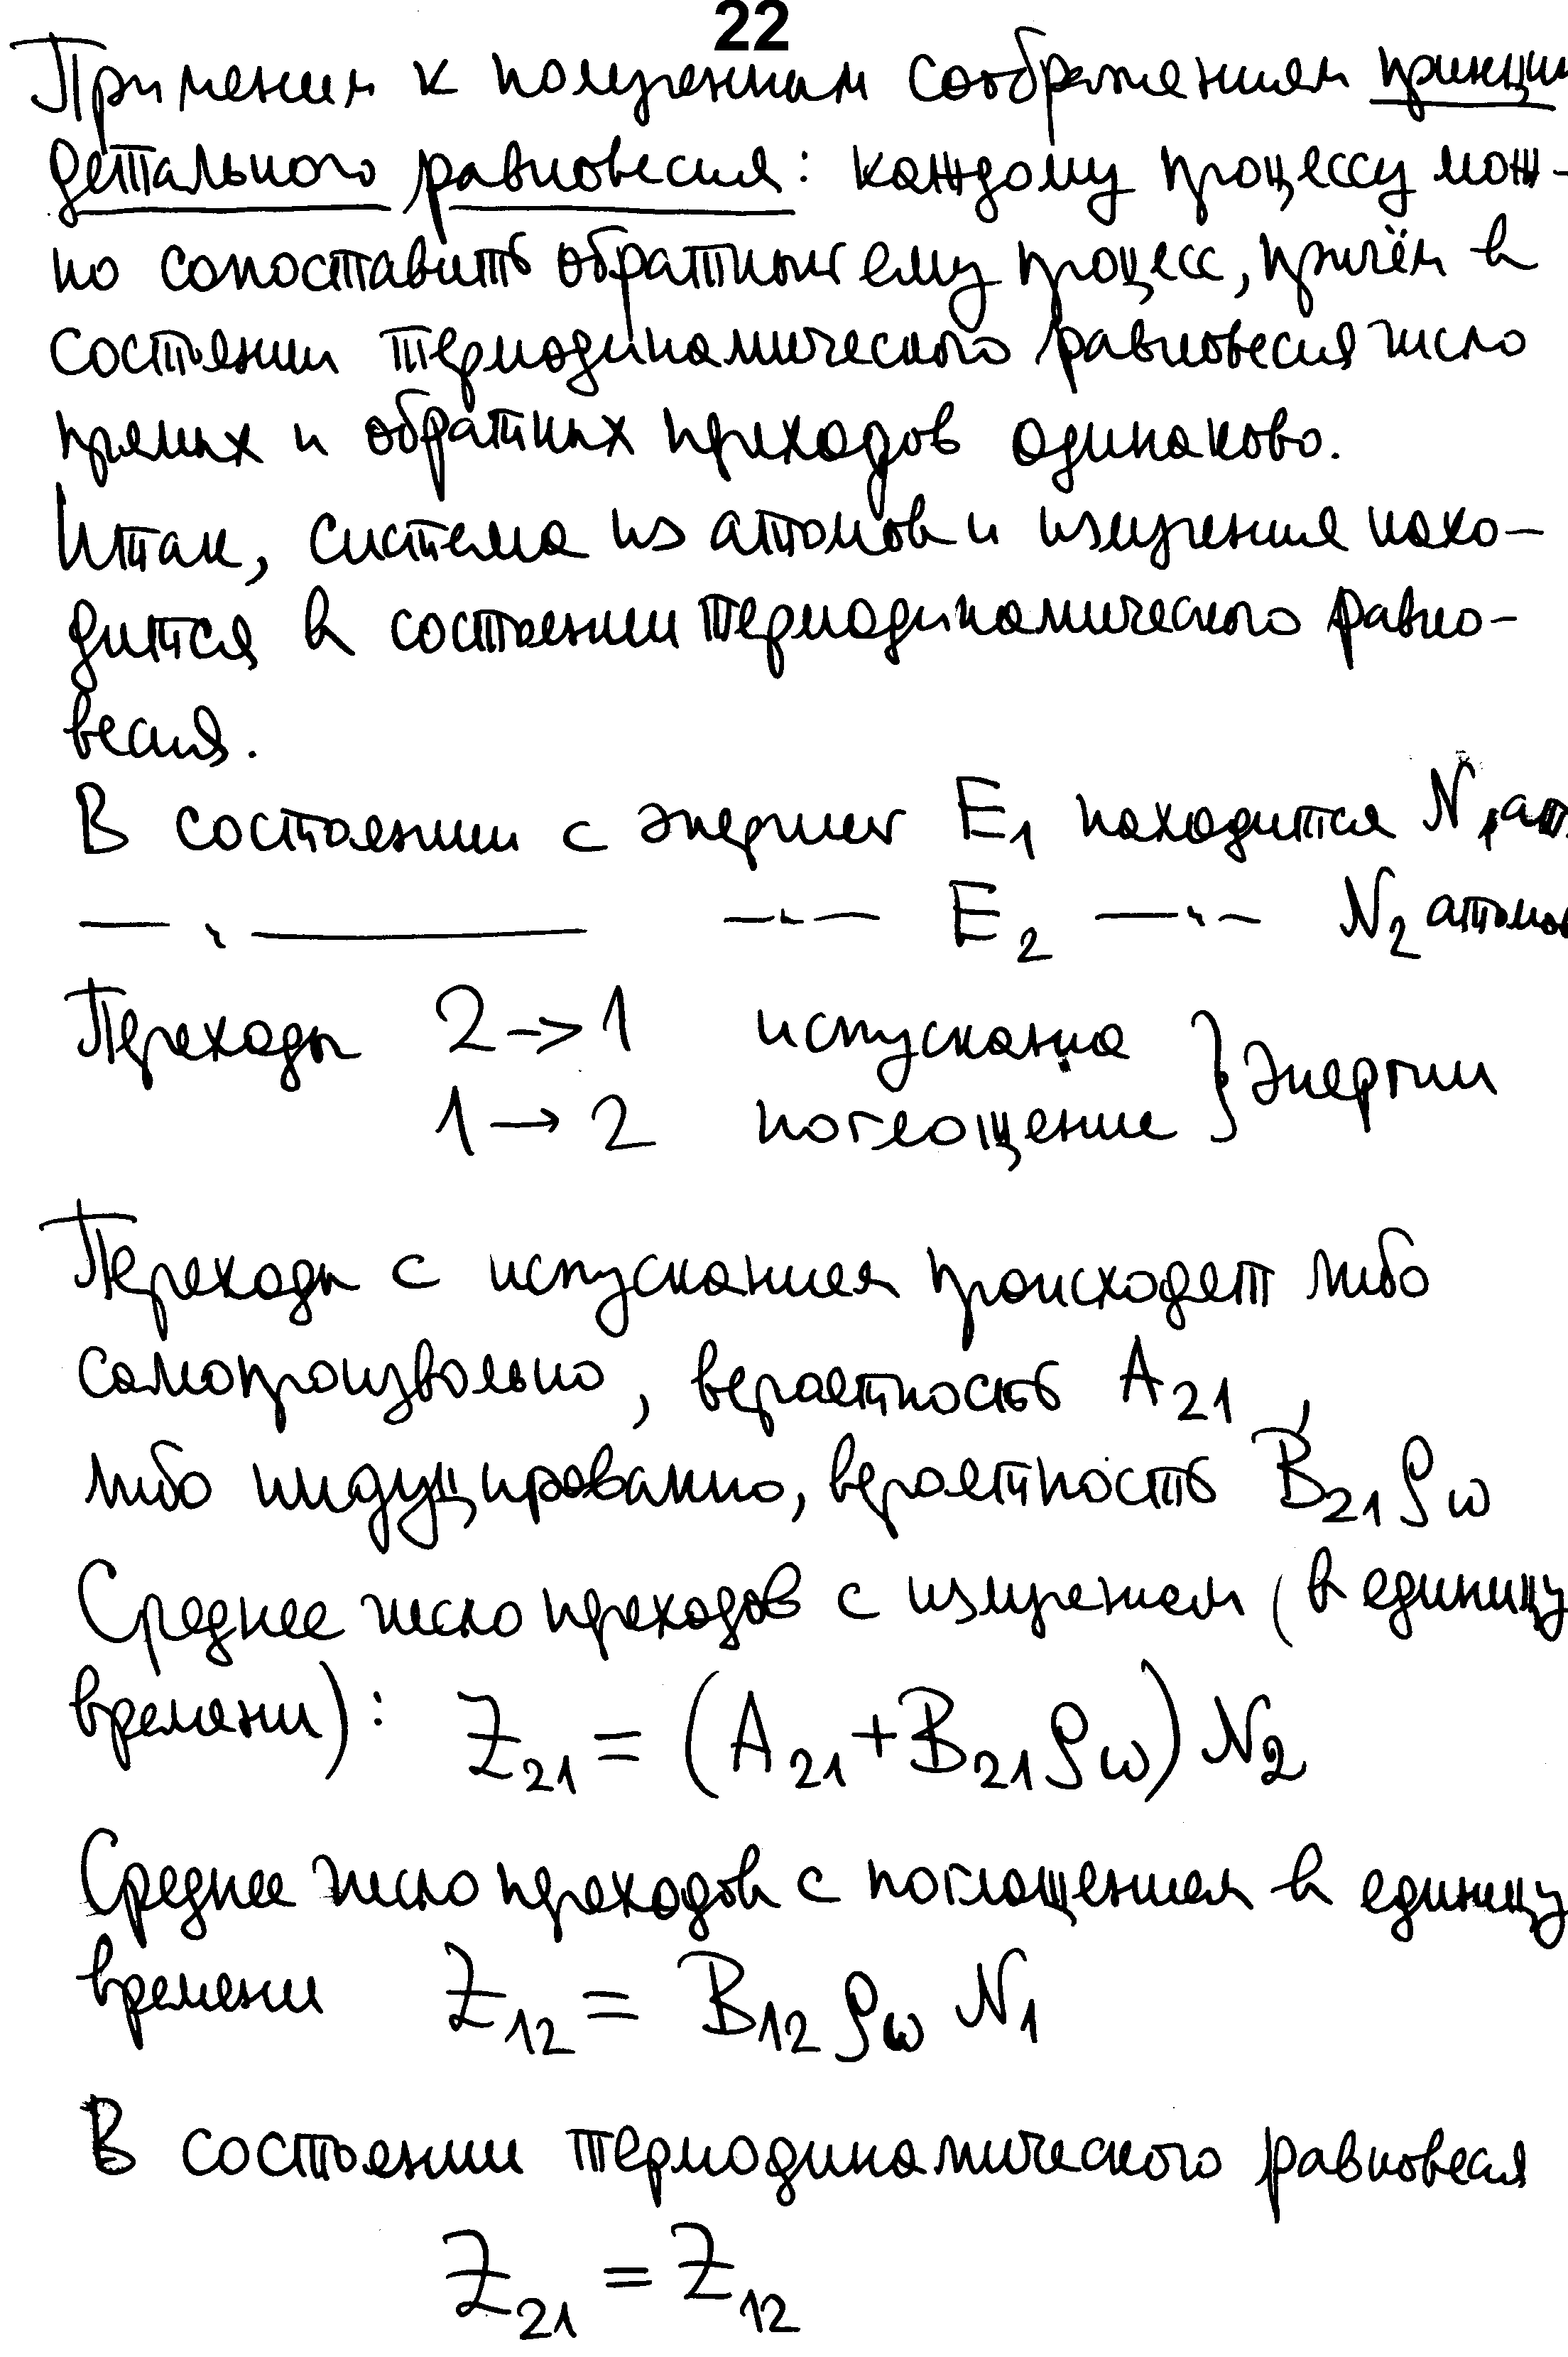 22
Применим к полученным соображениям принци
детального равновесия: каждому процессу мож-
но сопоставить обратный ему процесс, причём в
состоянии термодинамического равновесия число
прямых и обратных переходов одинаково.
Итак, система из атомов и излучения нахо-
дится в состоянии термодинамического равно-
весия.
В состоянии с энергией E₁ находится N₁ ат.
— " — — " — E₂ — " — N₂ атомов
Переходы 2 -> 1 испускание
1 → 2 поглощение } энергии
Переходы с испусканием происходят либо
самопроизвольно, вероятность A₂₁,
либо индуцированно, вероятность B₂₁ρω
Среднее число переходов с излучением (в единицу
времени): Z₂₁ = (A₂₁ + B₂₁ρω) N₂
Среднее число переходов с поглощением в единицу
времени Z₁₂ = B₁₂ρω N₁
В состоянии термодинамического равновесия
Z₂₁ = Z₁₂